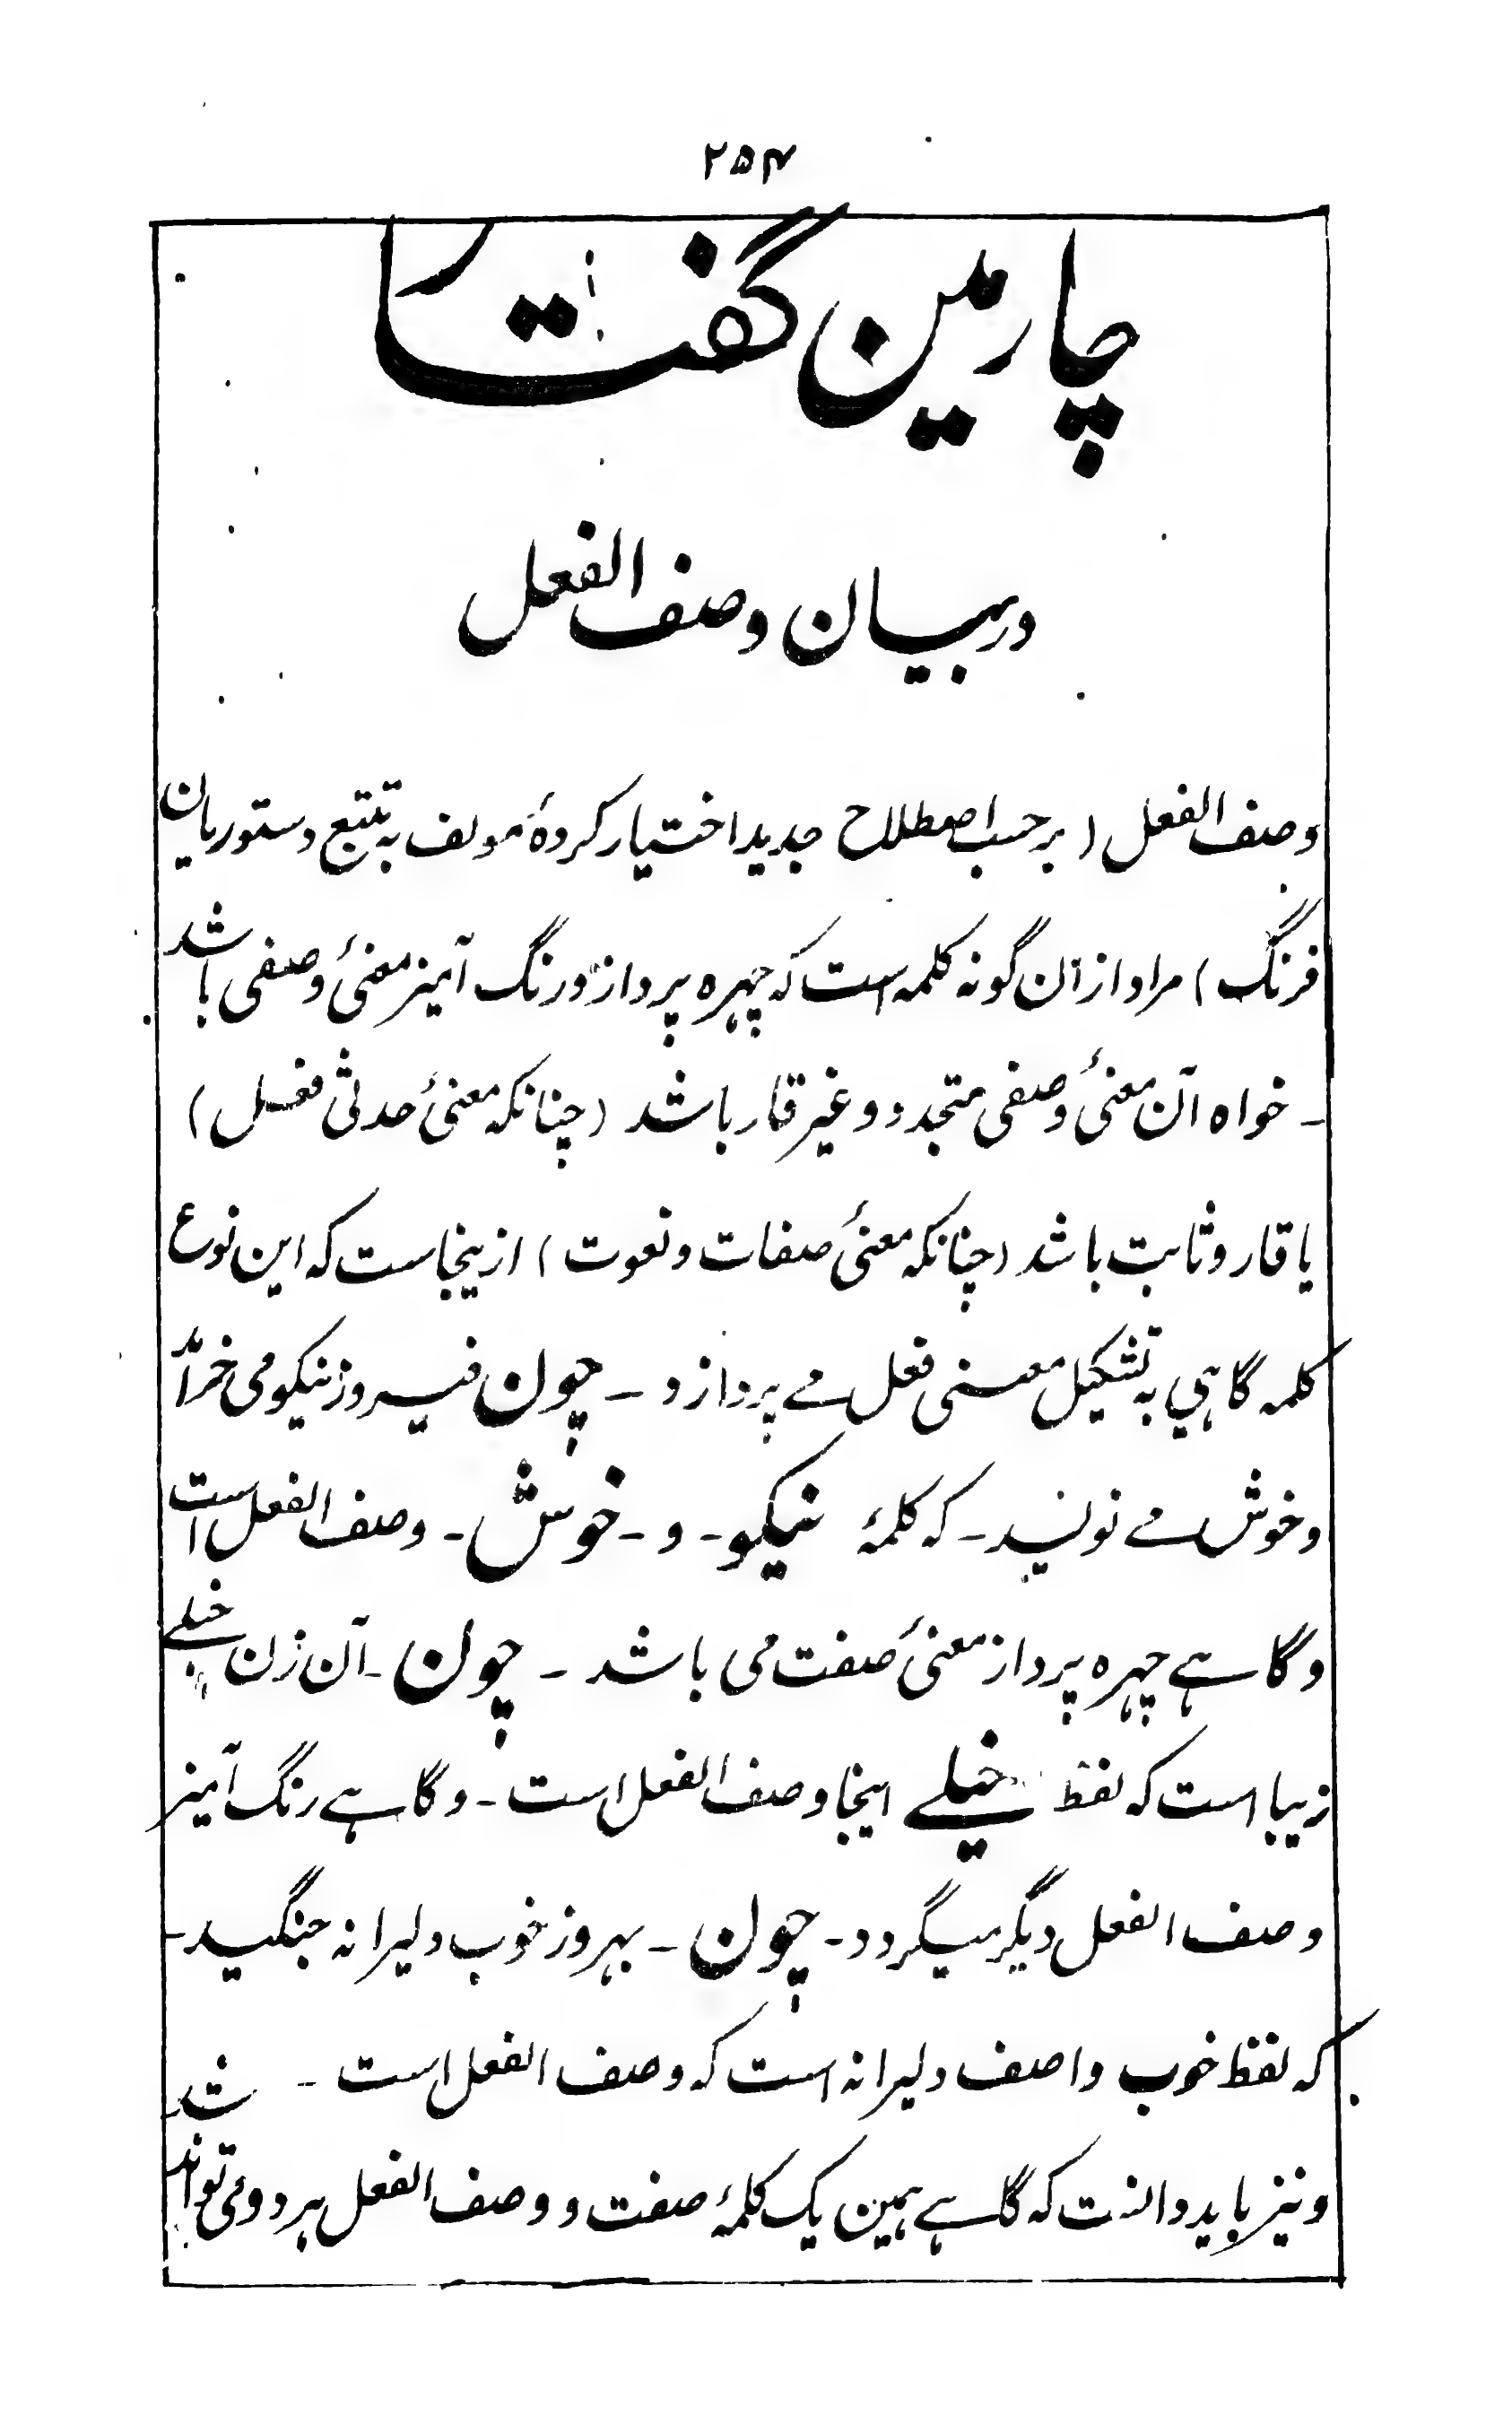 ۲۵۴
چارمین گفتار
در بیان وصف الفعل
وصف الفعل (بر حسب اصطلاح جدید اختیار کردهٔ مولف به تتبع دستوریان
فرنگ) مراد از آن گونه کلمه است که چهره پرداز و رنگ آمیز معنیٔ وصفی باشد
- خواه آن معنیٔ وصفی متجدد و غیر قار باشد (چنانکه معنیٔ حدثی فعل)
یا قار و ثابت باشد (چنانکه معنیٔ صفات و نعوت) ازینجاست که این نوع
کلمه گاهی به تشکیل معنی فعل مے پردازد - چون فیروز نیکو می خرامد
و خوش مے نویسد - که کلمهٔ نیکو - و - خوش - وصف الفعل است
و گاہے چهره پرداز معنیٔ صفت می باشد - چون - آن زن خیلے
زیبا است که لفظ خیلے اینجا وصف الفعل است - و گاہے رنگ آمیز
وصف الفعل دیگر میگردد - چون - بهروز خوب دلیرانه جنگید -
که لفظ خوب واصف دلیرانه است که وصف الفعل است -
و نیز باید دانست که گاہے همین یک کلمهٔ صفت و وصف الفعل هر دو می تواند شد